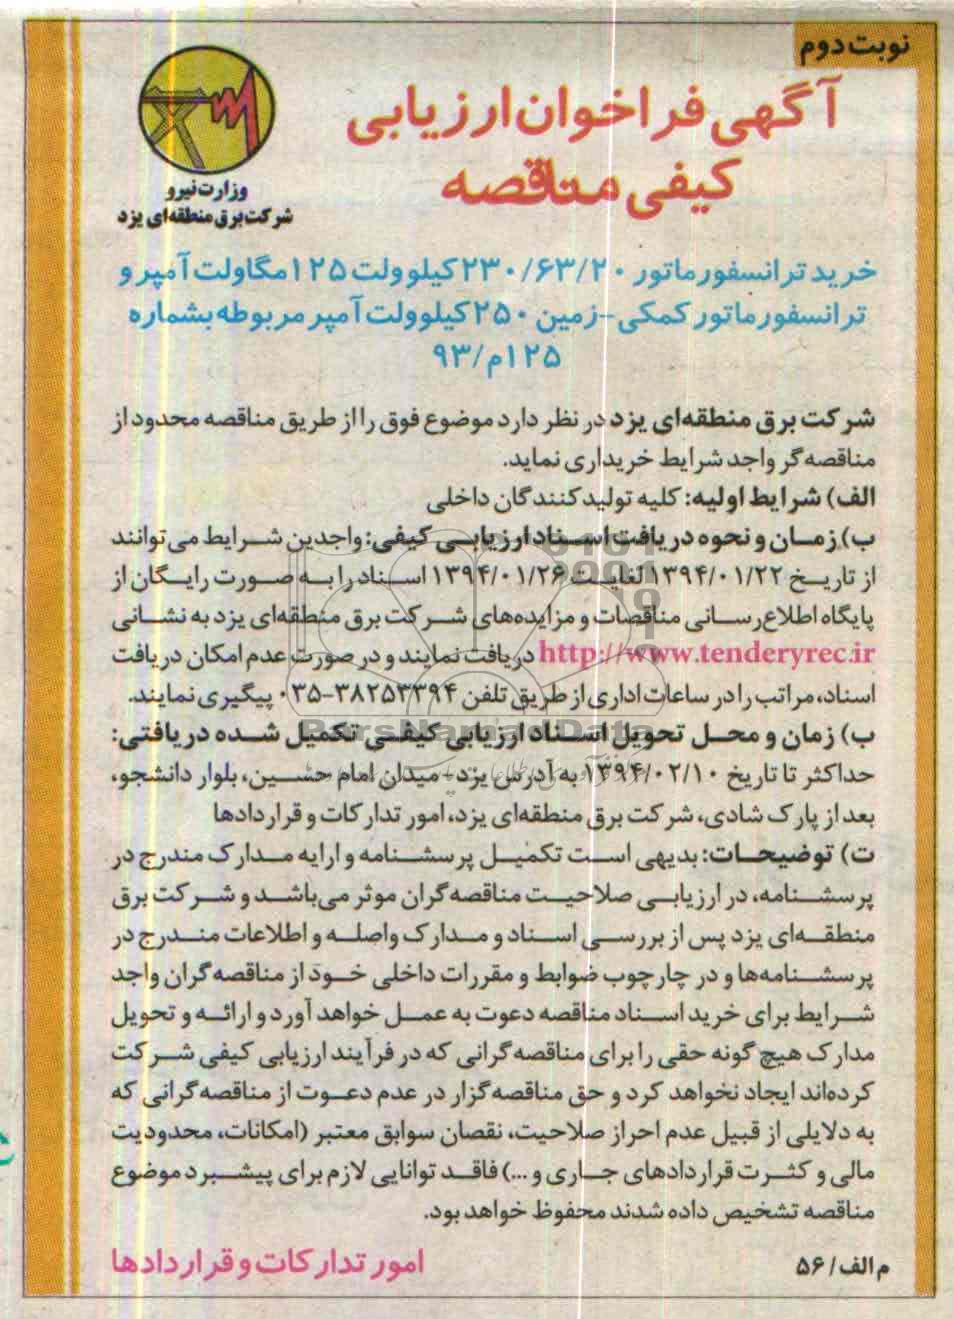 نوبت دوم
آگهی فراخوان ارزیابی
کیفی مناقصه
وزارت نیرو
شرکت برق منطقه‌ای یزد
خرید ترانسفورماتور ۲۳۰/۶۳/۲۰ کیلوولت ۱۲۵ مگاولت آمپر و
ترانسفورماتور کمکی-زمین ۲۵۰ کیلوولت آمپر مربوطه بشماره
۱۲۵م/۹۳
شرکت برق منطقه‌ای یزد در نظر دارد موضوع فوق را از طریق مناقصه محدود از
مناقصه‌گر واجد شرایط خریداری نماید.
الف) شرایط اولیه: کلیه تولیدکنندگان داخلی
ب) زمان و نحوه دریافت اسناد ارزیابی کیفی: واجدین شرایط می‌توانند
از تاریخ ۱۳۹۴/۰۱/۲۲ لغایت ۱۳۹۴/۰۱/۲۶ اسناد را به صورت رایگان از
پایگاه اطلاع‌رسانی مناقصات و مزایده‌های شرکت برق منطقه‌ای یزد به نشانی
http://www.tenderyrec.ir دریافت نمایند و در صورت عدم امکان دریافت
اسناد، مراتب را در ساعات اداری از طریق تلفن ۳۸۲۵۳۳۹۴-۰۳۵ پیگیری نمایند.
ب) زمان و محل تحویل اسناد ارزیابی کیفی تکمیل شده دریافتی:
حداکثر تا تاریخ ۱۳۹۴/۰۲/۱۰ به آدرس یزد - میدان امام حسین، بلوار دانشجو،
بعد از پارک شادی، شرکت برق منطقه‌ای یزد، امور تدارکات و قراردادها
ت) توضیحات: بدیهی است تکمیل پرسشنامه و ارایه مدارک مندرج در
پرسشنامه، در ارزیابی صلاحیت مناقصه‌گران موثر می‌باشد و شرکت برق
منطقه‌ای یزد پس از بررسی اسناد و مدارک واصله و اطلاعات مندرج در
پرسشنامه‌ها و در چارچوب ضوابط و مقررات داخلی خود از مناقصه‌گران واجد
شرایط برای خرید اسناد مناقصه دعوت به عمل خواهد آورد و ارائه و تحویل
مدارک هیچ گونه حقی را برای مناقصه‌گرانی که در فرآیند ارزیابی کیفی شرکت
کرده‌اند ایجاد نخواهد کرد و حق مناقصه‌گزار در عدم دعوت از مناقصه‌گرانی که
به دلایلی از قبیل عدم احراز صلاحیت، نقصان سوابق معتبر (امکانات، محدودیت
مالی و کثرت قراردادهای جاری و ...) فاقد توانایی لازم برای پیشبرد موضوع
مناقصه تشخیص داده شدند محفوظ خواهد بود.
م الف/۵۶
امور تدارکات و قراردادها
ParsNamadData